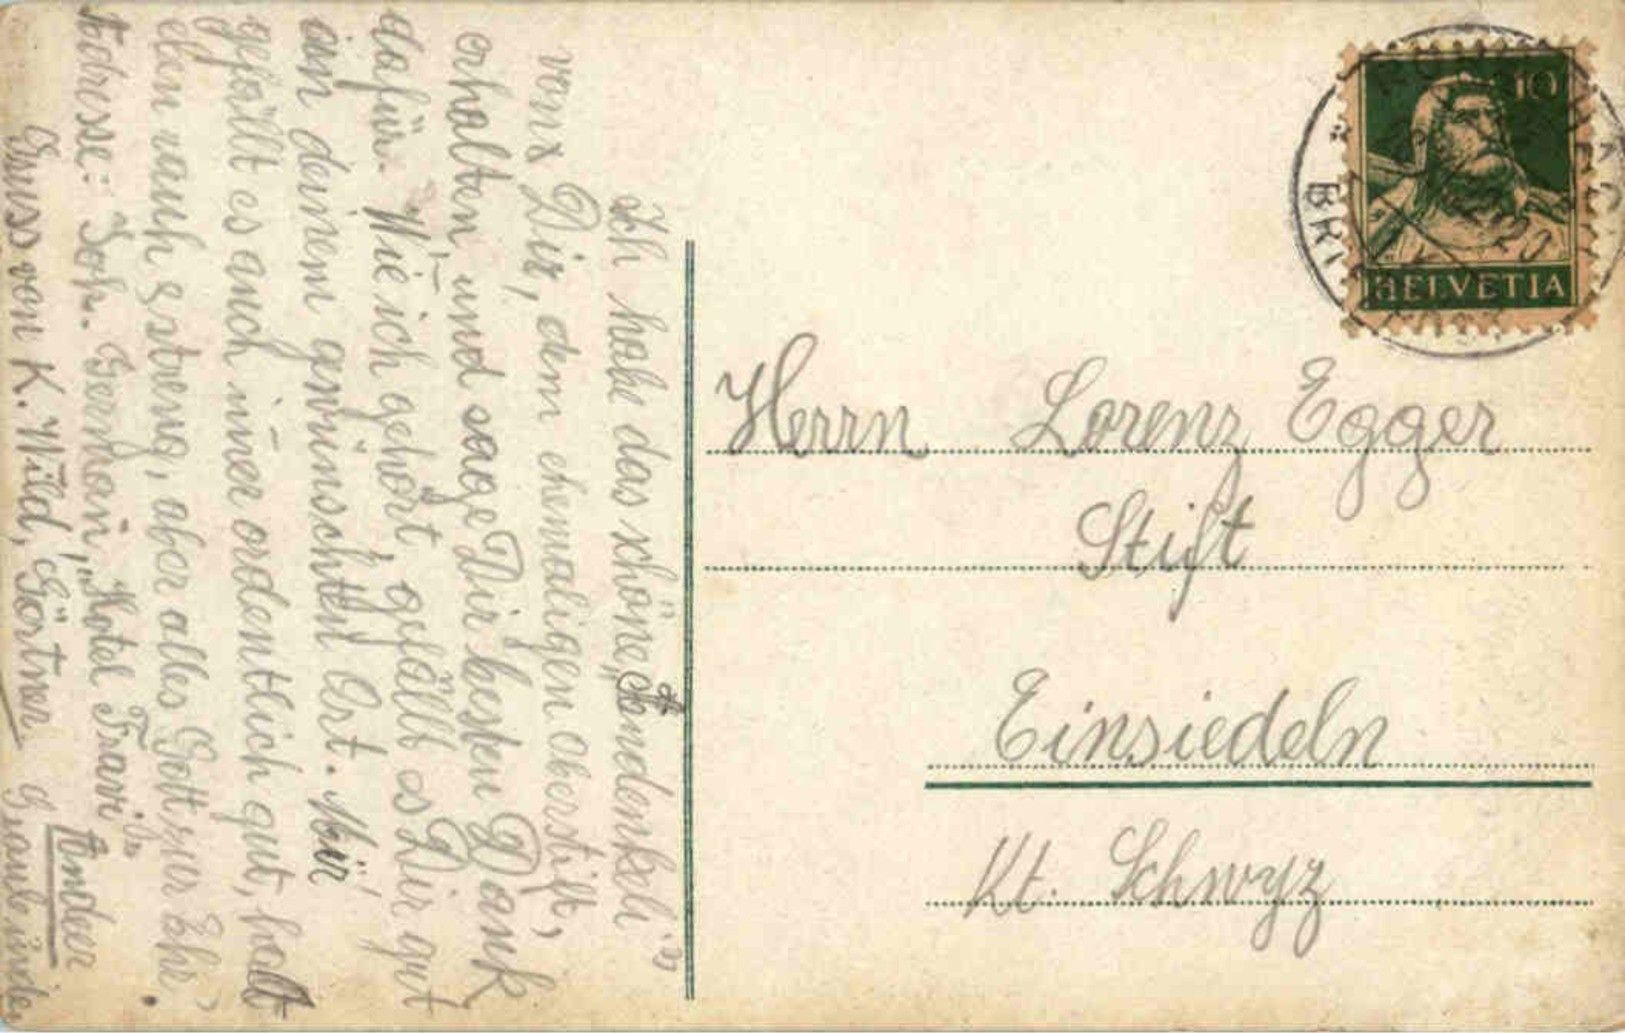 Ich habe das schöne „Andenkeli"
von Dir, dem ehemaligen Oberstift,
erhalten und sage Dir besten Dank
dafür. Wie ich gehört, gefällt es Dir gut
an deinem gewünschten Ort. Mir
gefällt es auch im̅er ordentlich gut, halt
eben rauh & streng, aber alles Gott zur Ehr'.
Adresse: Joh. Germann, „Hotel Fravi" in Andeer
Gruss von K. Wild, Gärtner Graubünden
Herrn Lorenz Egger
Stift
Einsiedeln
Kt. Schwyz
10
HELVETIA